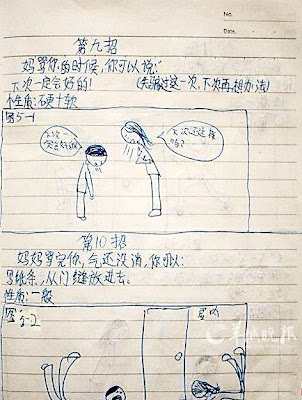 No.
Date
第九招
妈骂你的时候,你可以说:
下次一定会好的! (先骗过这一次,下次再想办法)
性质:硬+软
图5-1
下次一定会好的
下次还这样吗?
第10招
妈妈骂完你,气还没消,你可以:
写纸条,从门缝放进去。
性质:一般
图5-2
屋内
羊城晚报